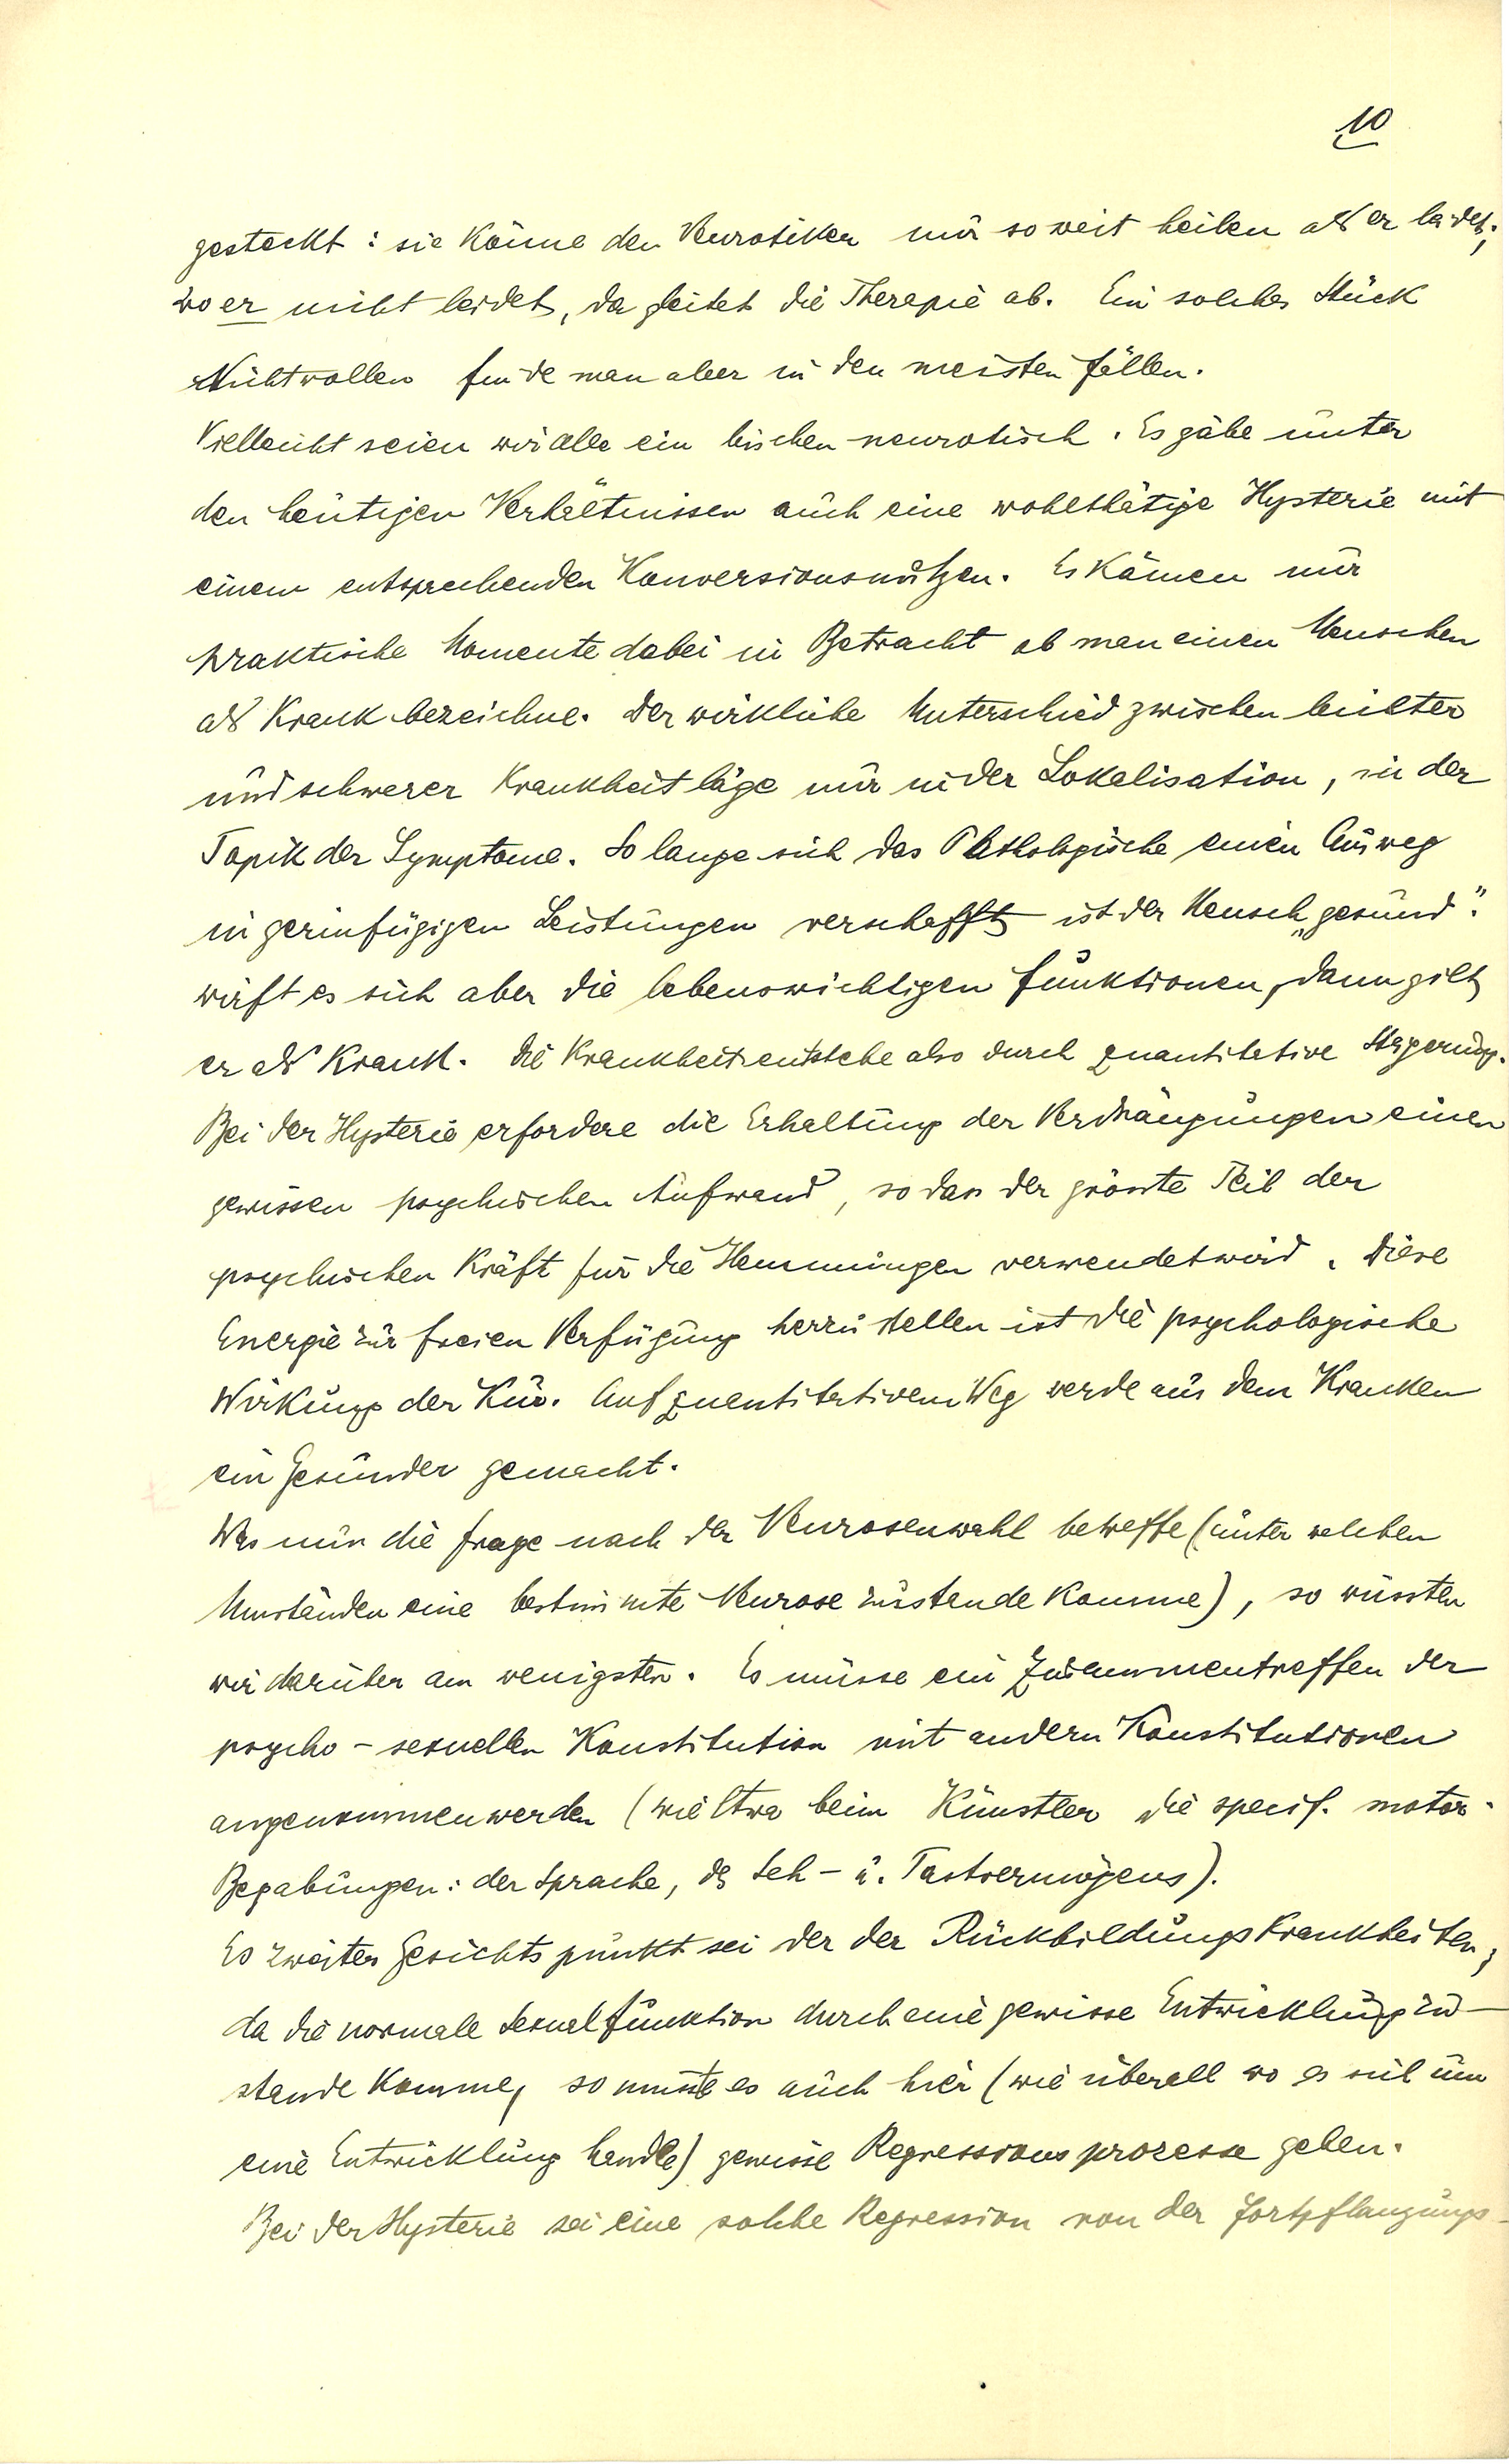 10
gesteckt: sie könne den Neurotiker nur soweit heilen als er leidet;
wo er nicht leidet, da gleitet die Therapie ab. Ein solches Stück
Nichtwollen finde man aber in den meisten Fällen.
Vielleicht seien wir alle ein bischen neurotisch. Es gäbe unter
den heutigen Verhältnissen auch eine wohlthätige Hysterie mit
einem entsprechenden Konversionsnutzen. Es kämen nur
praktische Momente dabei in Betracht ob man einen Menschen
als krank bezeichne. Der wirkliche Unterschied zwischen leichter
und schwerer Krankheit läge nur in der Lokalisation, in der
Topik der Symptome. So lange sich das Pathologische einen Ausweg
in gerinfügigen Leistungen verschafft ist der Mensch „gesund".
wirft es sich aber die lebenswichtigen Funktionen, dann gilt
er als krank. Die Krankheit entstehe also durch quantitative Steigerung.
Bei der Hysterie erfordere die Erhaltung der Verdrängungen einen
gewissen psychischen Aufwand, so dass der grösste Teil der
psychischen Kräft für die Hemmungen verwendet wird. Diese
Energie zur freien Verfügung herzustellen ist die psychologische
Wirkung der Kur. Auf quantitativem Weg werde aus dem Kranken
ein Gesunder gemacht.
Was nun die Frage nach der Neurosenwahl betreffe (unter welchen
Umständen eine bestimmte Neurose zustande komme), so wüssten
wir darüber am wenigsten. Es müsse ein Zusammentreffen der
psycho-sexuellen Konstitution mit andern Konstitutionen
angenommen werden (wie etwa beim Künstler die specif. motor.
Begabungen: der Sprache, des Seh- u. Tastvermögens).
Es zweiter Gesichtspunkt sei der der Rückbildungskrankheiten;
da die normale Sexualfunktion durch eine gewisse Entwicklung zu-
stande komme, so müsste es auch hier (wie überall wo es sich um
eine Entwicklung handle) gewisse Regressionsprozesse geben.
Bei der Hysterie sei eine solche Regression von der Fortpflanzungs-